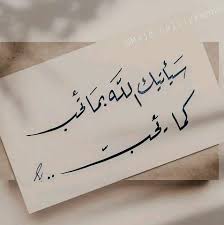 سيأتيك الله بما تحب
كما يحب ..